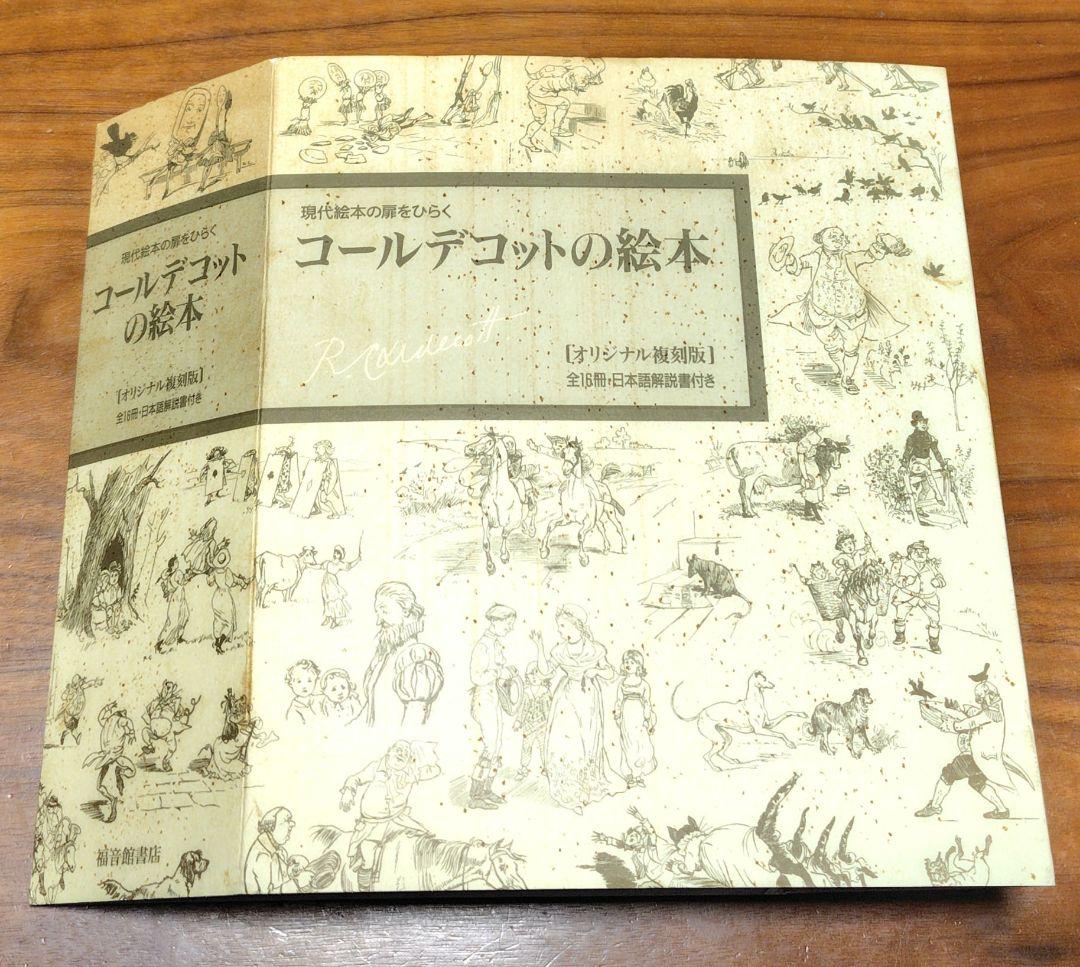 現代絵本の扉をひらく
コールデコット
の絵本
［オリジナル複刻版］
全16冊・日本語解説書付き
福音館書店
現代絵本の扉をひらく
コールデコットの絵本
R. Caldecott
［オリジナル複刻版］
全16冊・日本語解説書付き